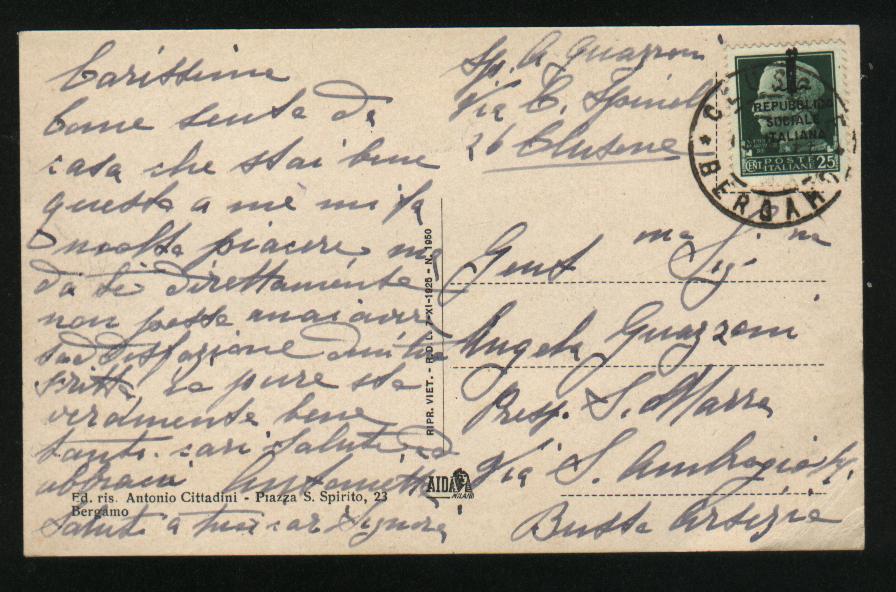 Carissima
Come sento da
casa che stai bene
questo a me mi fa
molto piacere, ma
da te direttamente
non posso mai aver
soddisfazione
scritto, io pure sto
veramente bene
tanti cari saluti ed
abbracci Antonietta
Saluti a tuoi cari Signora
Ed. ris. Antonio Cittadini - Piazza S. Spirito, 23
Bergamo
RIPR. VIET. - R.D.L. 7-XI-1925 - N. 1950
AIDA
MILANO
Sp. A. Guazzoni
Via C. Spinelli
26 Clusone
REPUBBLICA
SOCIALE
ITALIANA
CENT. POSTE
ITALIANE 25
* BERGAMO
Gent ma Sig na
Angela Guazzoni
Presp. S. Marra
Via S. Ambrogio
Busto Arsizio